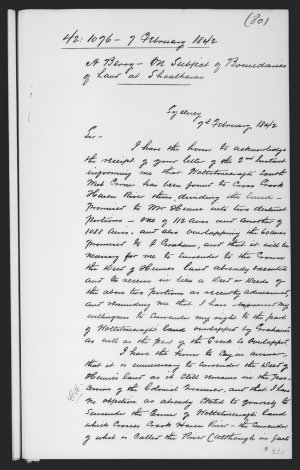 (80)
42:1096 - 7 February 1842
A Berry - On Subject of Boundaries
of Land at Shoalhaven
Sydney
7th February, 1842
Sir -
I have the honor to acknowledge
the receipt of your letter of the 2nd Instant
informing me that Wollstonecraft's South
West Corner has been found to Cross Crook
Haven River thus dividing the land
promised to Mr Hume into two distinct
portions - one of 112 Acres and another of
1088 Acres, and also overlapping the
promised to J Graham, and that it will be
necessary for me to surrender to the Crown
the Deed of Humes Land already executed
and to receive in lieu a Deed or Deeds of
the above two portions as recently admeasured,
and reminding me that I have expressed my
willingness to surrender my right to the part
of Wollstonecraft's land overlapped by Grahams
as well as the part of the Creek so Overlapped.
I have the honor to say in answer,
that it is unnecessary to surrender the Deed of
Humes land as it still remains in the
of the Colonial Treasurer, and that I have
no objection as already stated to yourself to
Surrender the Corner of Wollstonecraft's Land
which Crosses Crook Haven River - the Surrender
of what is called the River (although in fact